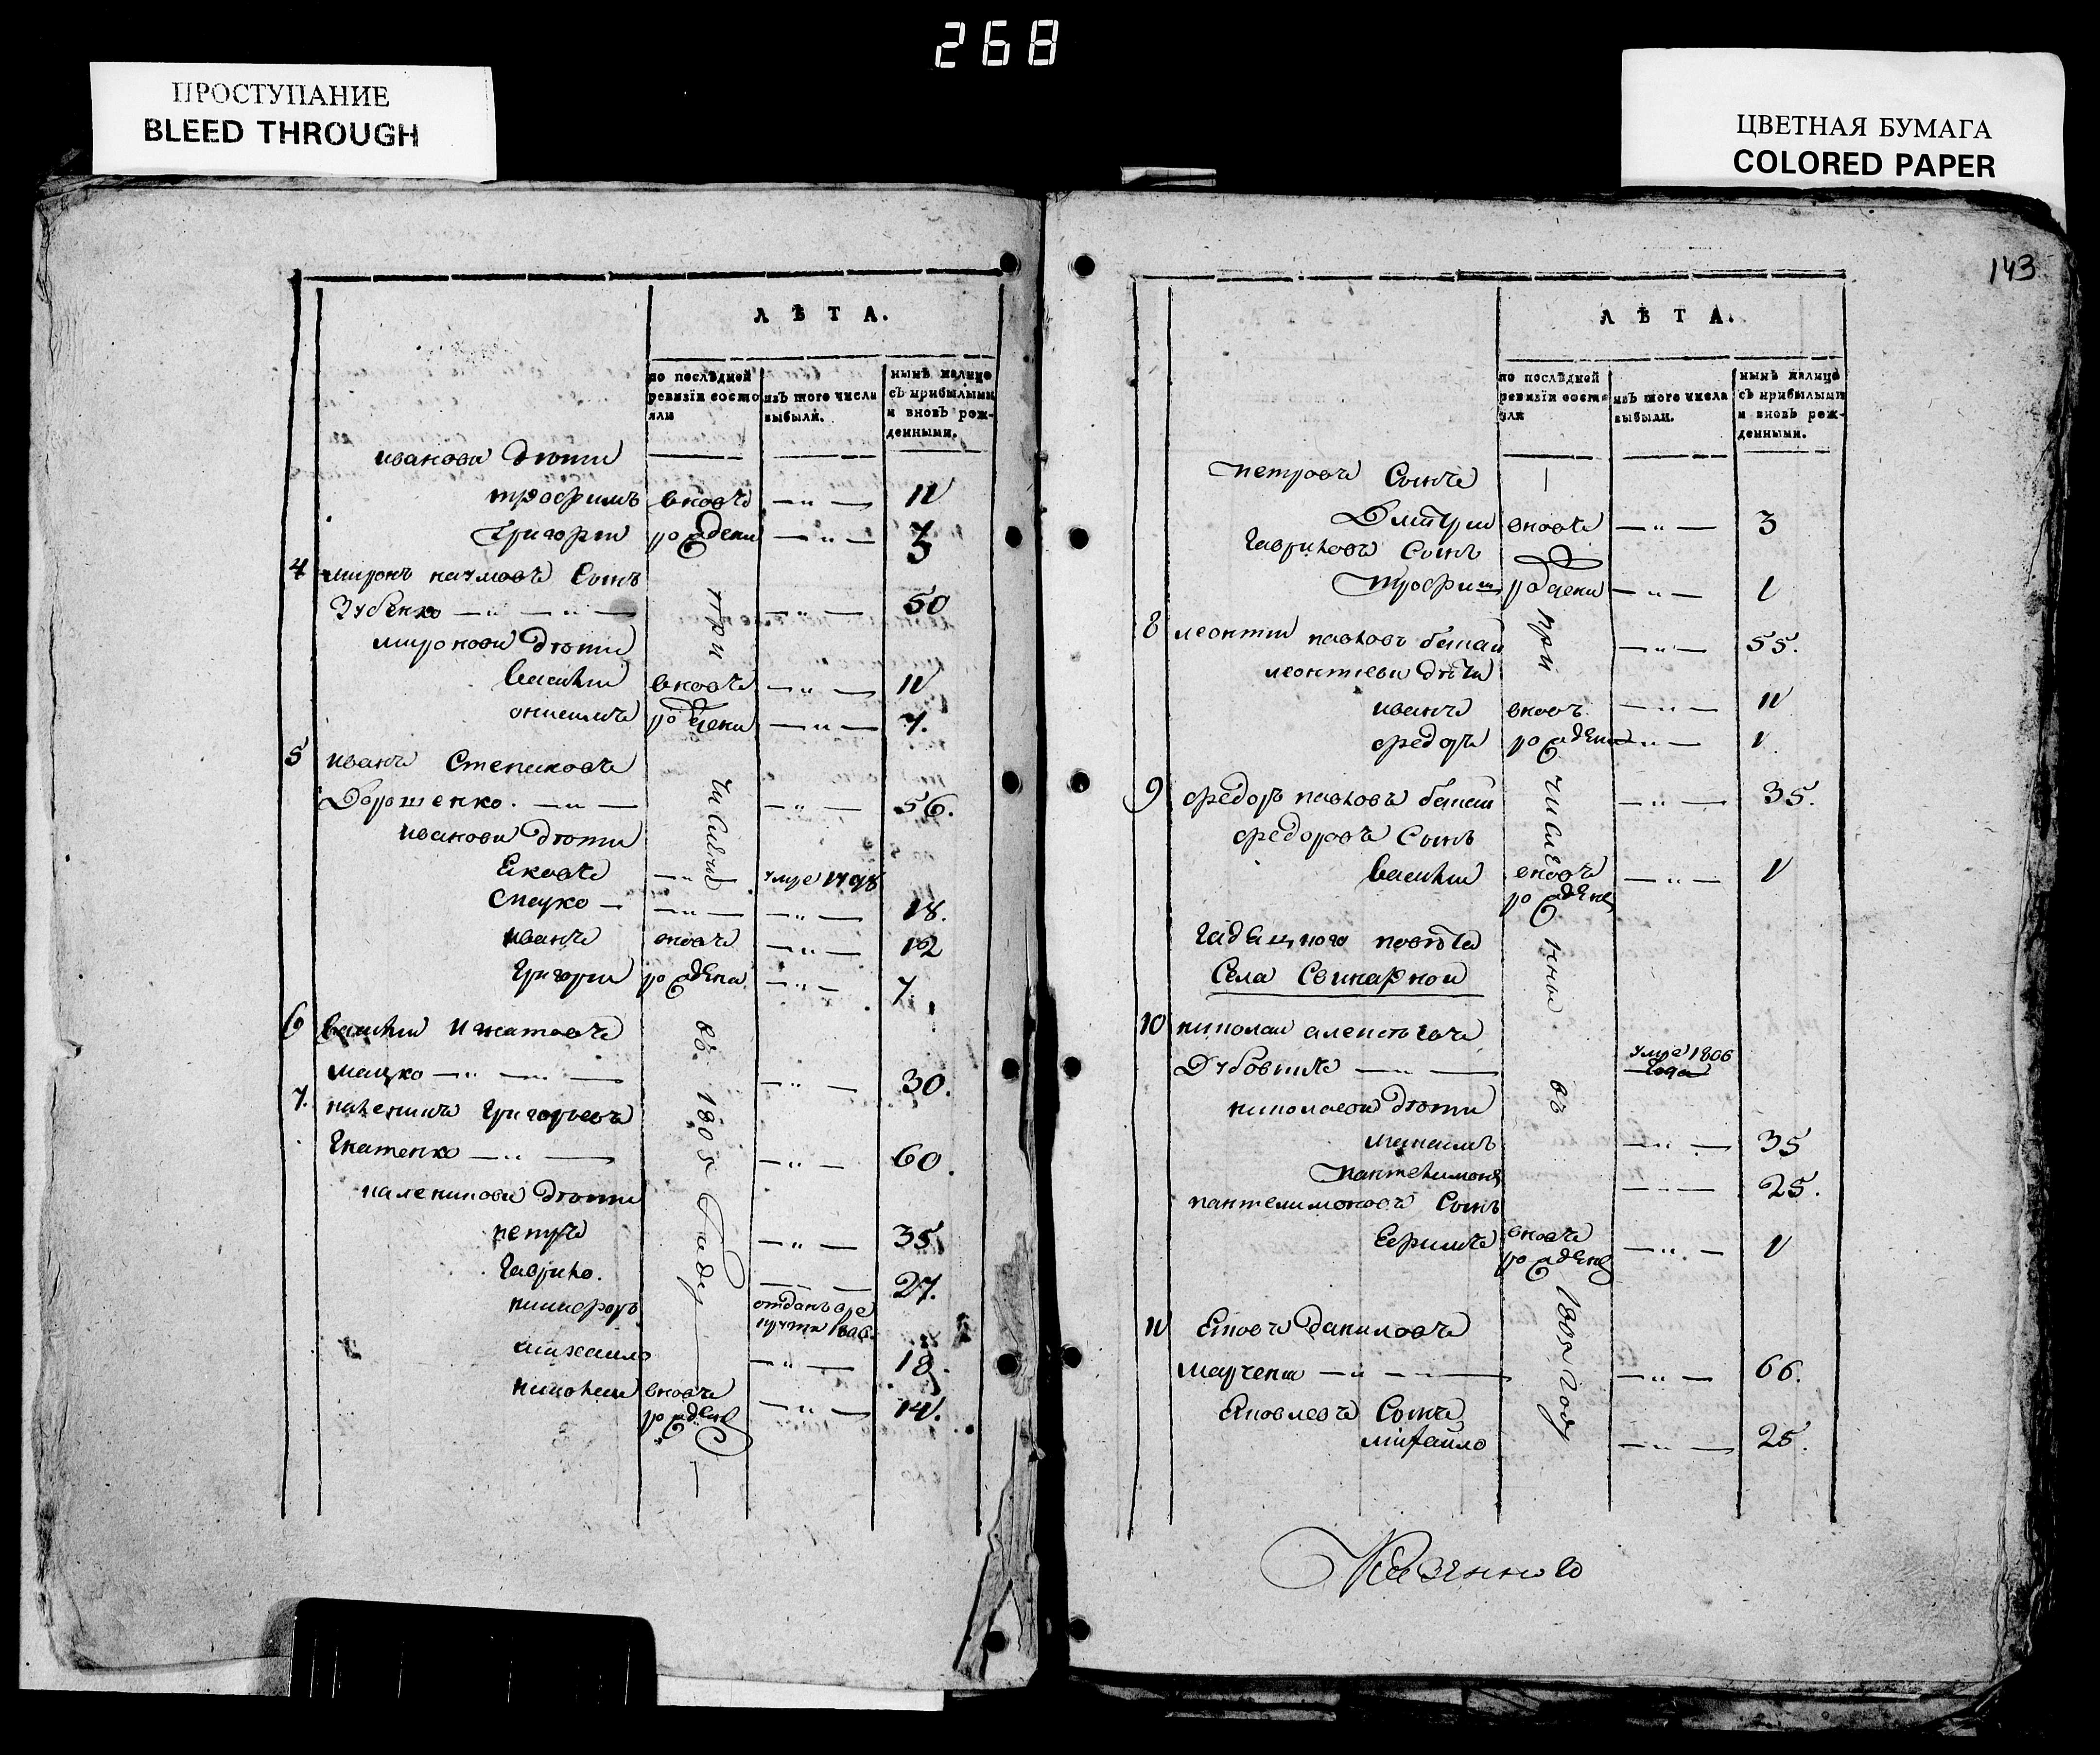 268
ПРОСТУПАНИЕ
BLEED THROUGH
ЦВЕТНАЯ БУМАГА
COLORED PAPER
143
ЛѢТА.
по послѣдней ревизіи состояли
изъ того числа выбыли.
нынѣ налицо съ прибылыми и вновь рожденными.
иванови дѣти
трофимъ вновъ — „ — 11
Григорій рожден — „ — 3
4 миронъ наумовъ Сынъ
Зубенко — „ — „ — — „ — 50
миронови дѣти
василій вновъ — „ — 11
онисимъ рожден — „ — 7.
5 иванъ Степановъ
Дорошенко. — „ — — „ — 56.
иванови дѣти
Яковъ — „ — умре 1798
Спирко — — „ — — „ — 18.
иванъ вновъ — „ — 12
Григорій рожден — „ — 7
6 василій Игнатовъ
мацко — „ — „ — — „ — 30.
7. каленикъ Григорьевъ
Гнатенко — „ — — „ — 60.
каленикови дѣти
петръ — „ — 35
Гаврило. — — 27.
никифоръ отданъ в рекруты
михаило — „ — 18.
николай вновъ рожден — „ — 14.
при числені въ 1805 году
ЛѢТА.
по послѣдней ревизіи состояли
изъ того числа выбыли.
нынѣ налицо съ прибылыми и вновь рожденными.
петровъ Сынъ —
Дмитрій вновъ — „ — 3
Гавриловъ Сынъ
трофим рожден — „ — 1
8 леонтій павловъ — „ — 55.
леонтіеви дѣти
иванъ вновъ — „ — 11
федоръ рожден — „ — 1.
9 федоръ павловъ — „ — 35.
федоровъ Сынъ
василій вновъ рожден — „ — 1
Гадяцкого повѣта
Села Свинарной
10 николай алексѣевъ
Дубовикъ — „ — умре 1806 года
николаеви дѣти
максимъ — „ — 35
пантелимонъ — „ — 25.
пантелимоновъ Сынъ
Ефимъ вновъ рожден — „ — 1
11 Яковъ даниловъ
марченко — „ — — „ — 66.
Яковлевъ Сынъ
михайло — „ — 25.
при числені въ 1805 году
Казенного